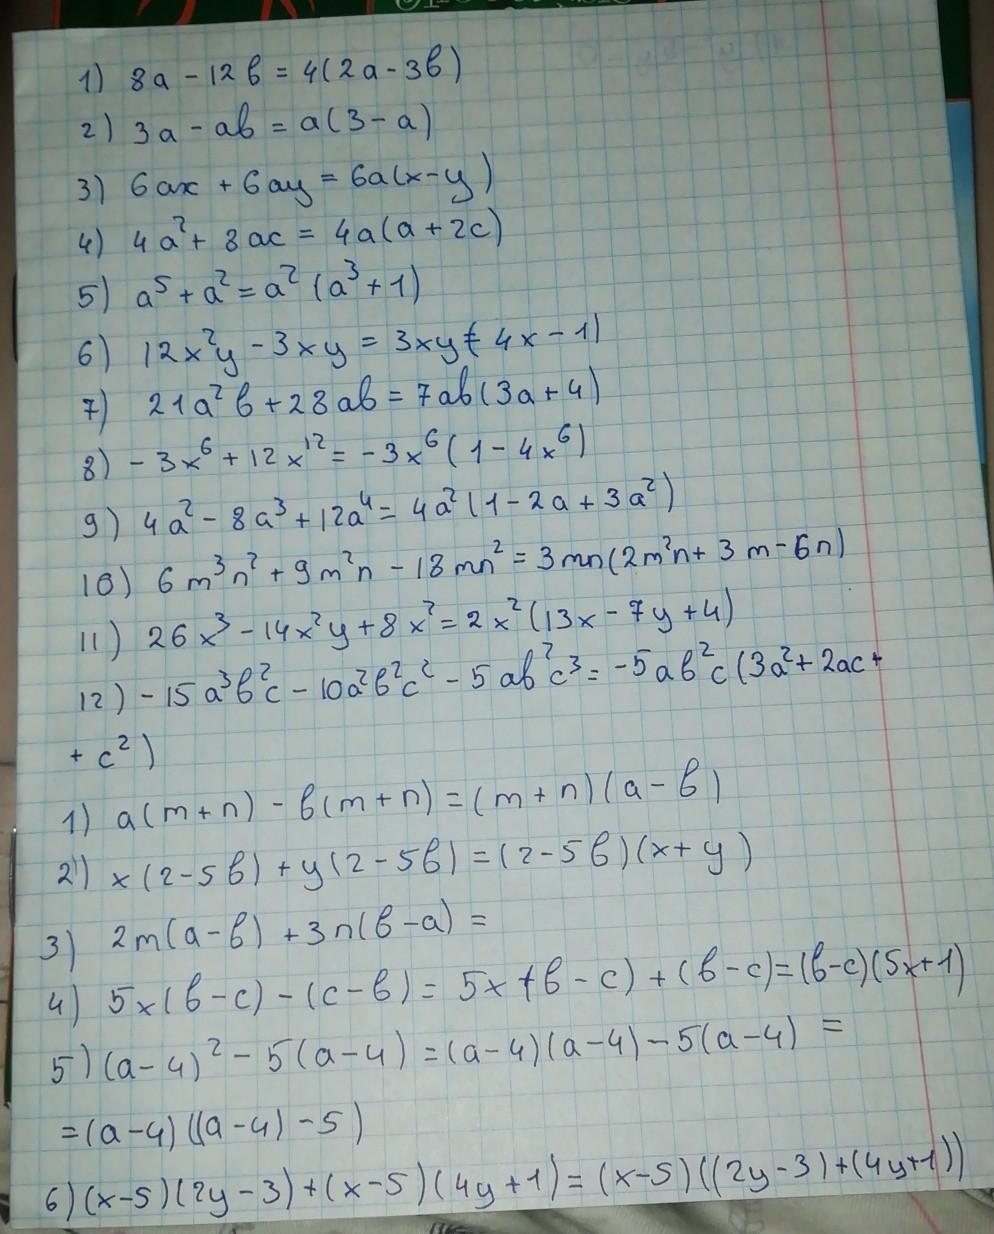 1) 8a - 12в = 4(2a - 3в)
2) 3a - aв = a(3 - a)
3) 6ax + 6ay = 6a(x - y)
4) 4a² + 8ac = 4a(a + 2c)
5) a⁵ + a² = a² (a³ + 1)
6) 12x²y - 3xy = 3xy(4x - 1)
7) 21a²в + 28aв = 7aв(3a + 4)
8) - 3x⁶ + 12x¹² = -3x⁶ (1 - 4x⁶)
9) 4a² - 8a³ + 12a⁴ = 4a² (1 - 2a + 3a²)
10) 6m³n² + 9m²n - 18mn² = 3mn(2m²n + 3m - 6n)
11) 26x³ - 14x²y + 8x² = 2x² (13x - 7y + 4)
12) - 15a³в²c - 10a²в²c² - 5aв²c³ = -5aв²c (3a² + 2ac +
+ c²)
1) a(m + n) - в(m + n) = (m + n)(a - в)
2) x(2 - 5в) + y(2 - 5в) = (2 - 5в)(x + y)
3) 2m(a - в) + 3n(в - a) =
4) 5x(в - c) - (c - в) = 5x(в - c) + (в - c) = (в - c)(5x + 1)
5) (a - 4)² - 5(a - 4) = (a - 4)(a - 4) - 5(a - 4) =
= (a - 4)((a - 4) - 5)
6) (x - 5)(2y - 3) + (x - 5)(4y + 1) = (x - 5)((2y - 3) + (4y + 1))